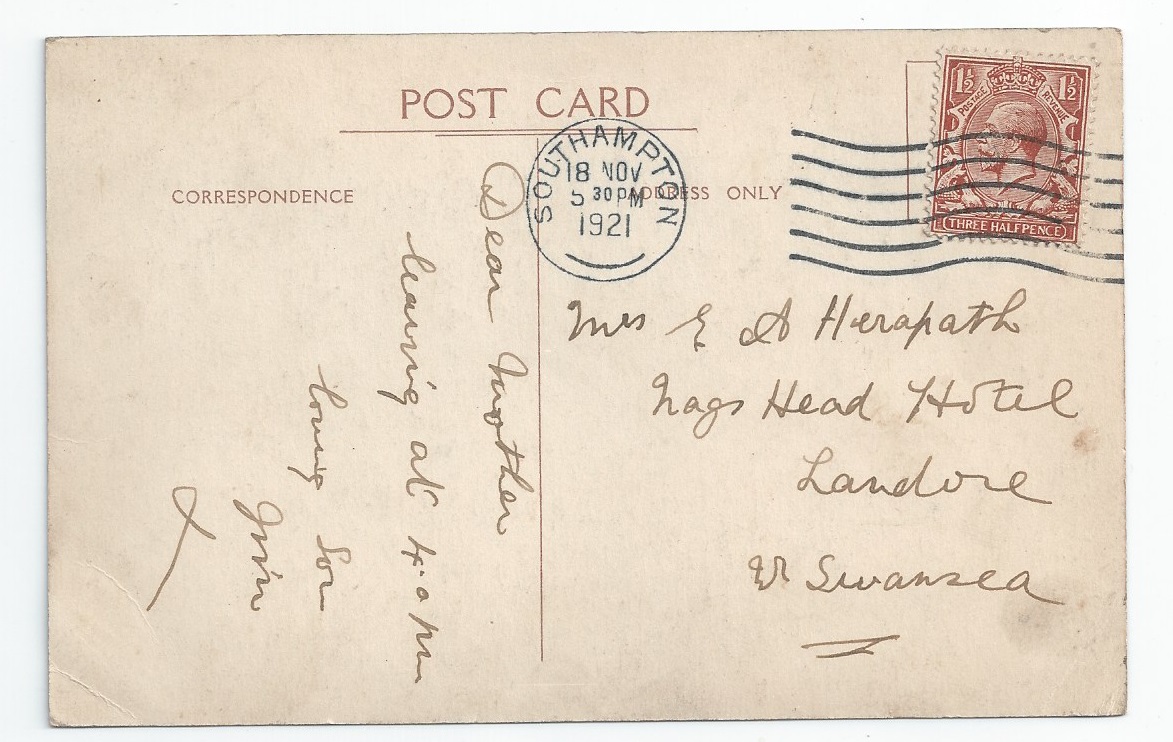 POST CARD
CORRESPONDENCE
ADDRESS ONLY
SOUTHAMPTON
18 NOV
5 30 PM
1921
1½ 1½
POSTAGE REVENUE
THREE HALFPENCE
Dear Mother
leaving at 4.0 pm
loving Son
Jim
X
Mrs E A Herapath
Nags Head Hotel
Landore
Nr Swansea